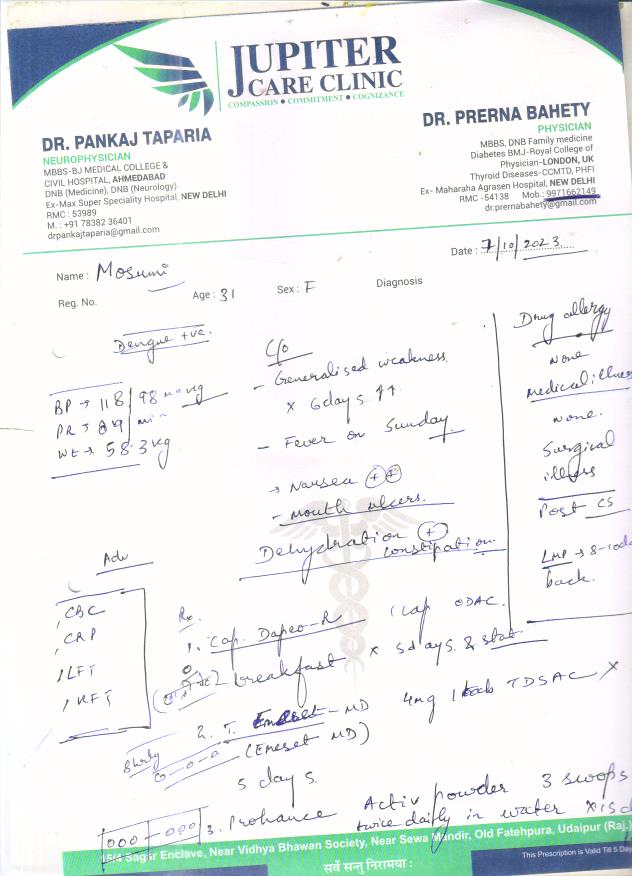 JUPITER
CARE CLINIC
COMPASSION • COMMITMENT • COGNIZANCE
DR. PANKAJ TAPARIA
NEUROPHYSICIAN
MBBS-BJ MEDICAL COLLEGE &
CIVIL HOSPITAL, AHMEDABAD
DNB (Medicine), DNB (Neurology)
Ex-Max Super Speciality Hospital, NEW DELHI
RMC : 53989
M. : +91 78382 36401
drpankajtaparia@gmail.com
DR. PRERNA BAHETY
PHYSICIAN
MBBS, DNB Family medicine
Diabetes BMJ-Royal College of
Physician-LONDON, UK
Thyroid Diseases-CCMTD, PHFI
Ex- Maharaha Agrasen Hospital, NEW DELHI
RMC -54138 Mob.: 9971662149
dr.prernabahety@gmail.com
Date : 7/10/2023
Name : Mosumi
Reg. No.
Age : 31
Sex : F
Diagnosis
Dengue +ve.
BP → 118/98 mmHg
PR → 89/min
WT → 58.3 kg
C/o
- Generalised weakness
x 6 days ↑↑
- Fever on Sunday
→ Nausea ++
- mouth ulcers.
Dehydration +
constipation
Drug allergy
None
Medical illness
None.
Surgical
illness
Post CS
LMP → 8-10d
back.
Adv
, CBC
, CRP
, LFT
, RFT
Rx.
1. Cap. Dapeo-R 1 cap ODAC.
breakfast x 5 days & stat
2. T. Emeset-MD 4mg 1 tab TDSAC x
8 hrly
0-0-0
(Emeset MD)
5 days.
000-000
3. Prohance Activ powder 3 scoops
twice daily in water x 15 d
15/4 Sagar Enclave, Near Vidhya Bhawan Society, Near Sewa Mandir, Old Fatehpura, Udaipur (Raj.)
सर्वे सन्तु निरामया :
This Prescription is Valid Till 5 Day